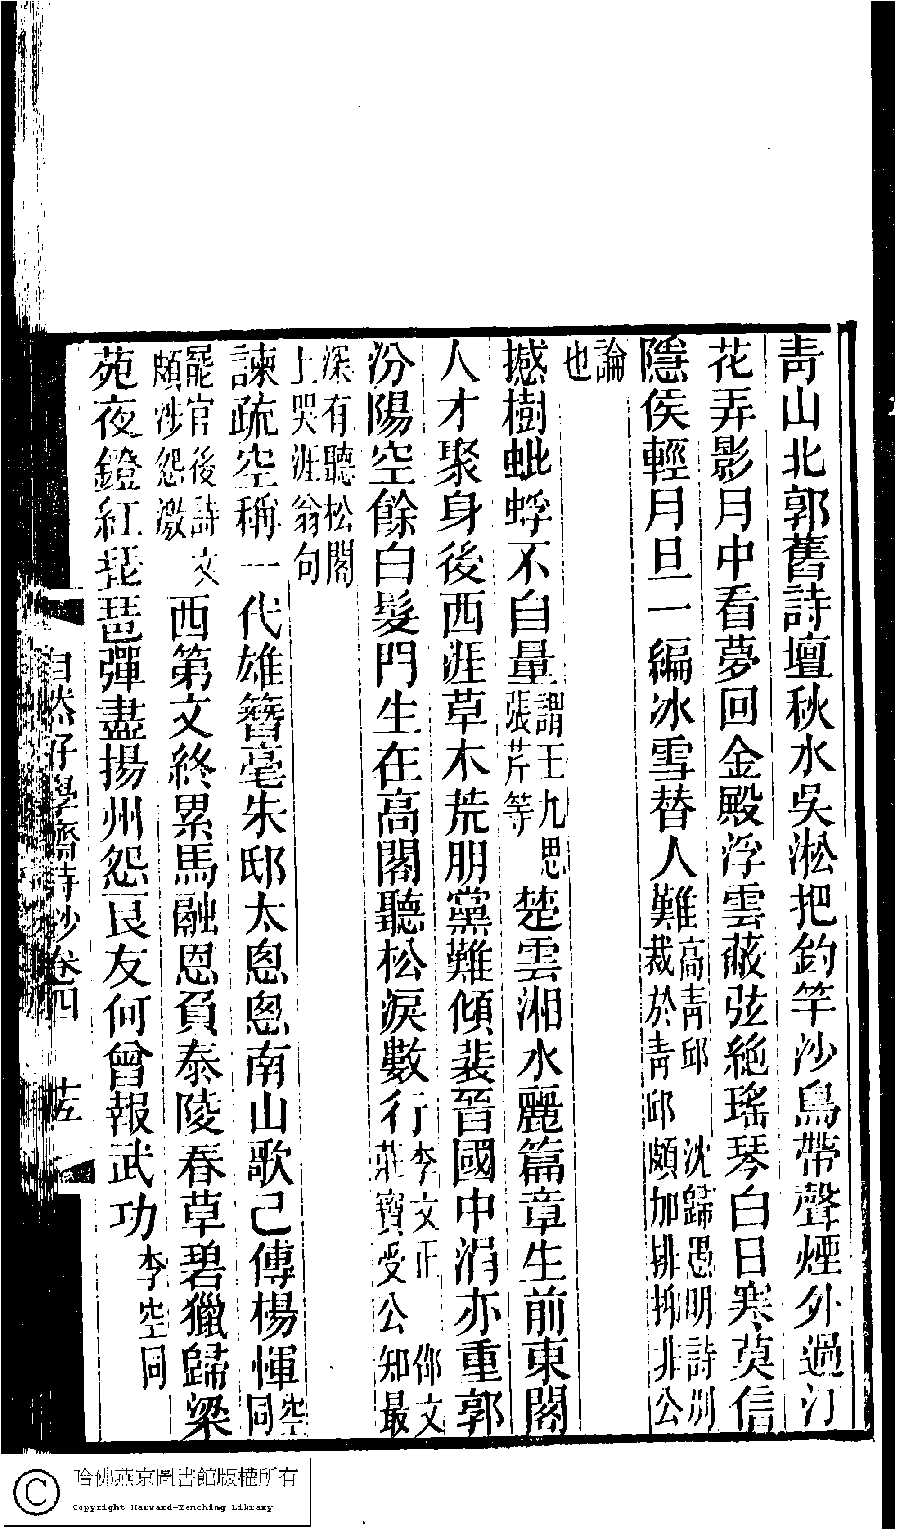 青山北郭舊詩壇秋水吳淞把釣竿沙鳥帶聲煙外過汀
花弄影月中看夢回金殿浮雲蔽弦絶瑤琴白日寒莫信
隱侯輕月旦一編冰雪替人難高青邱 沈歸愚明詩別
裁於青邱頗加排抑非公
論
也
撼樹蚍蜉不自量謂王九思
張芹等楚雲湘水麗篇章生前東閣
人才聚身後西涯草木荒朋黨難傾裴晉國中涓亦重郭
汾陽空餘白髮門生在高閣聽松淚數行李文正 邵文
莊寶受公知最
深有聽松閣
上哭涯翁句
諫疏空稱一代雄簪毫朱邸太恖恖南山歌已傳楊惲空
同
罷官後詩文
頗涉怨激西第文終累馬融恩負泰陵春草碧獵歸梁
苑夜鐙紅琵琶彈盡揚州怨良友何曾報武功李空同
自然好學齋詩鈔卷四
十五
哈佛燕京圖書館版權所有
Copyright Harvard-Yenching Library